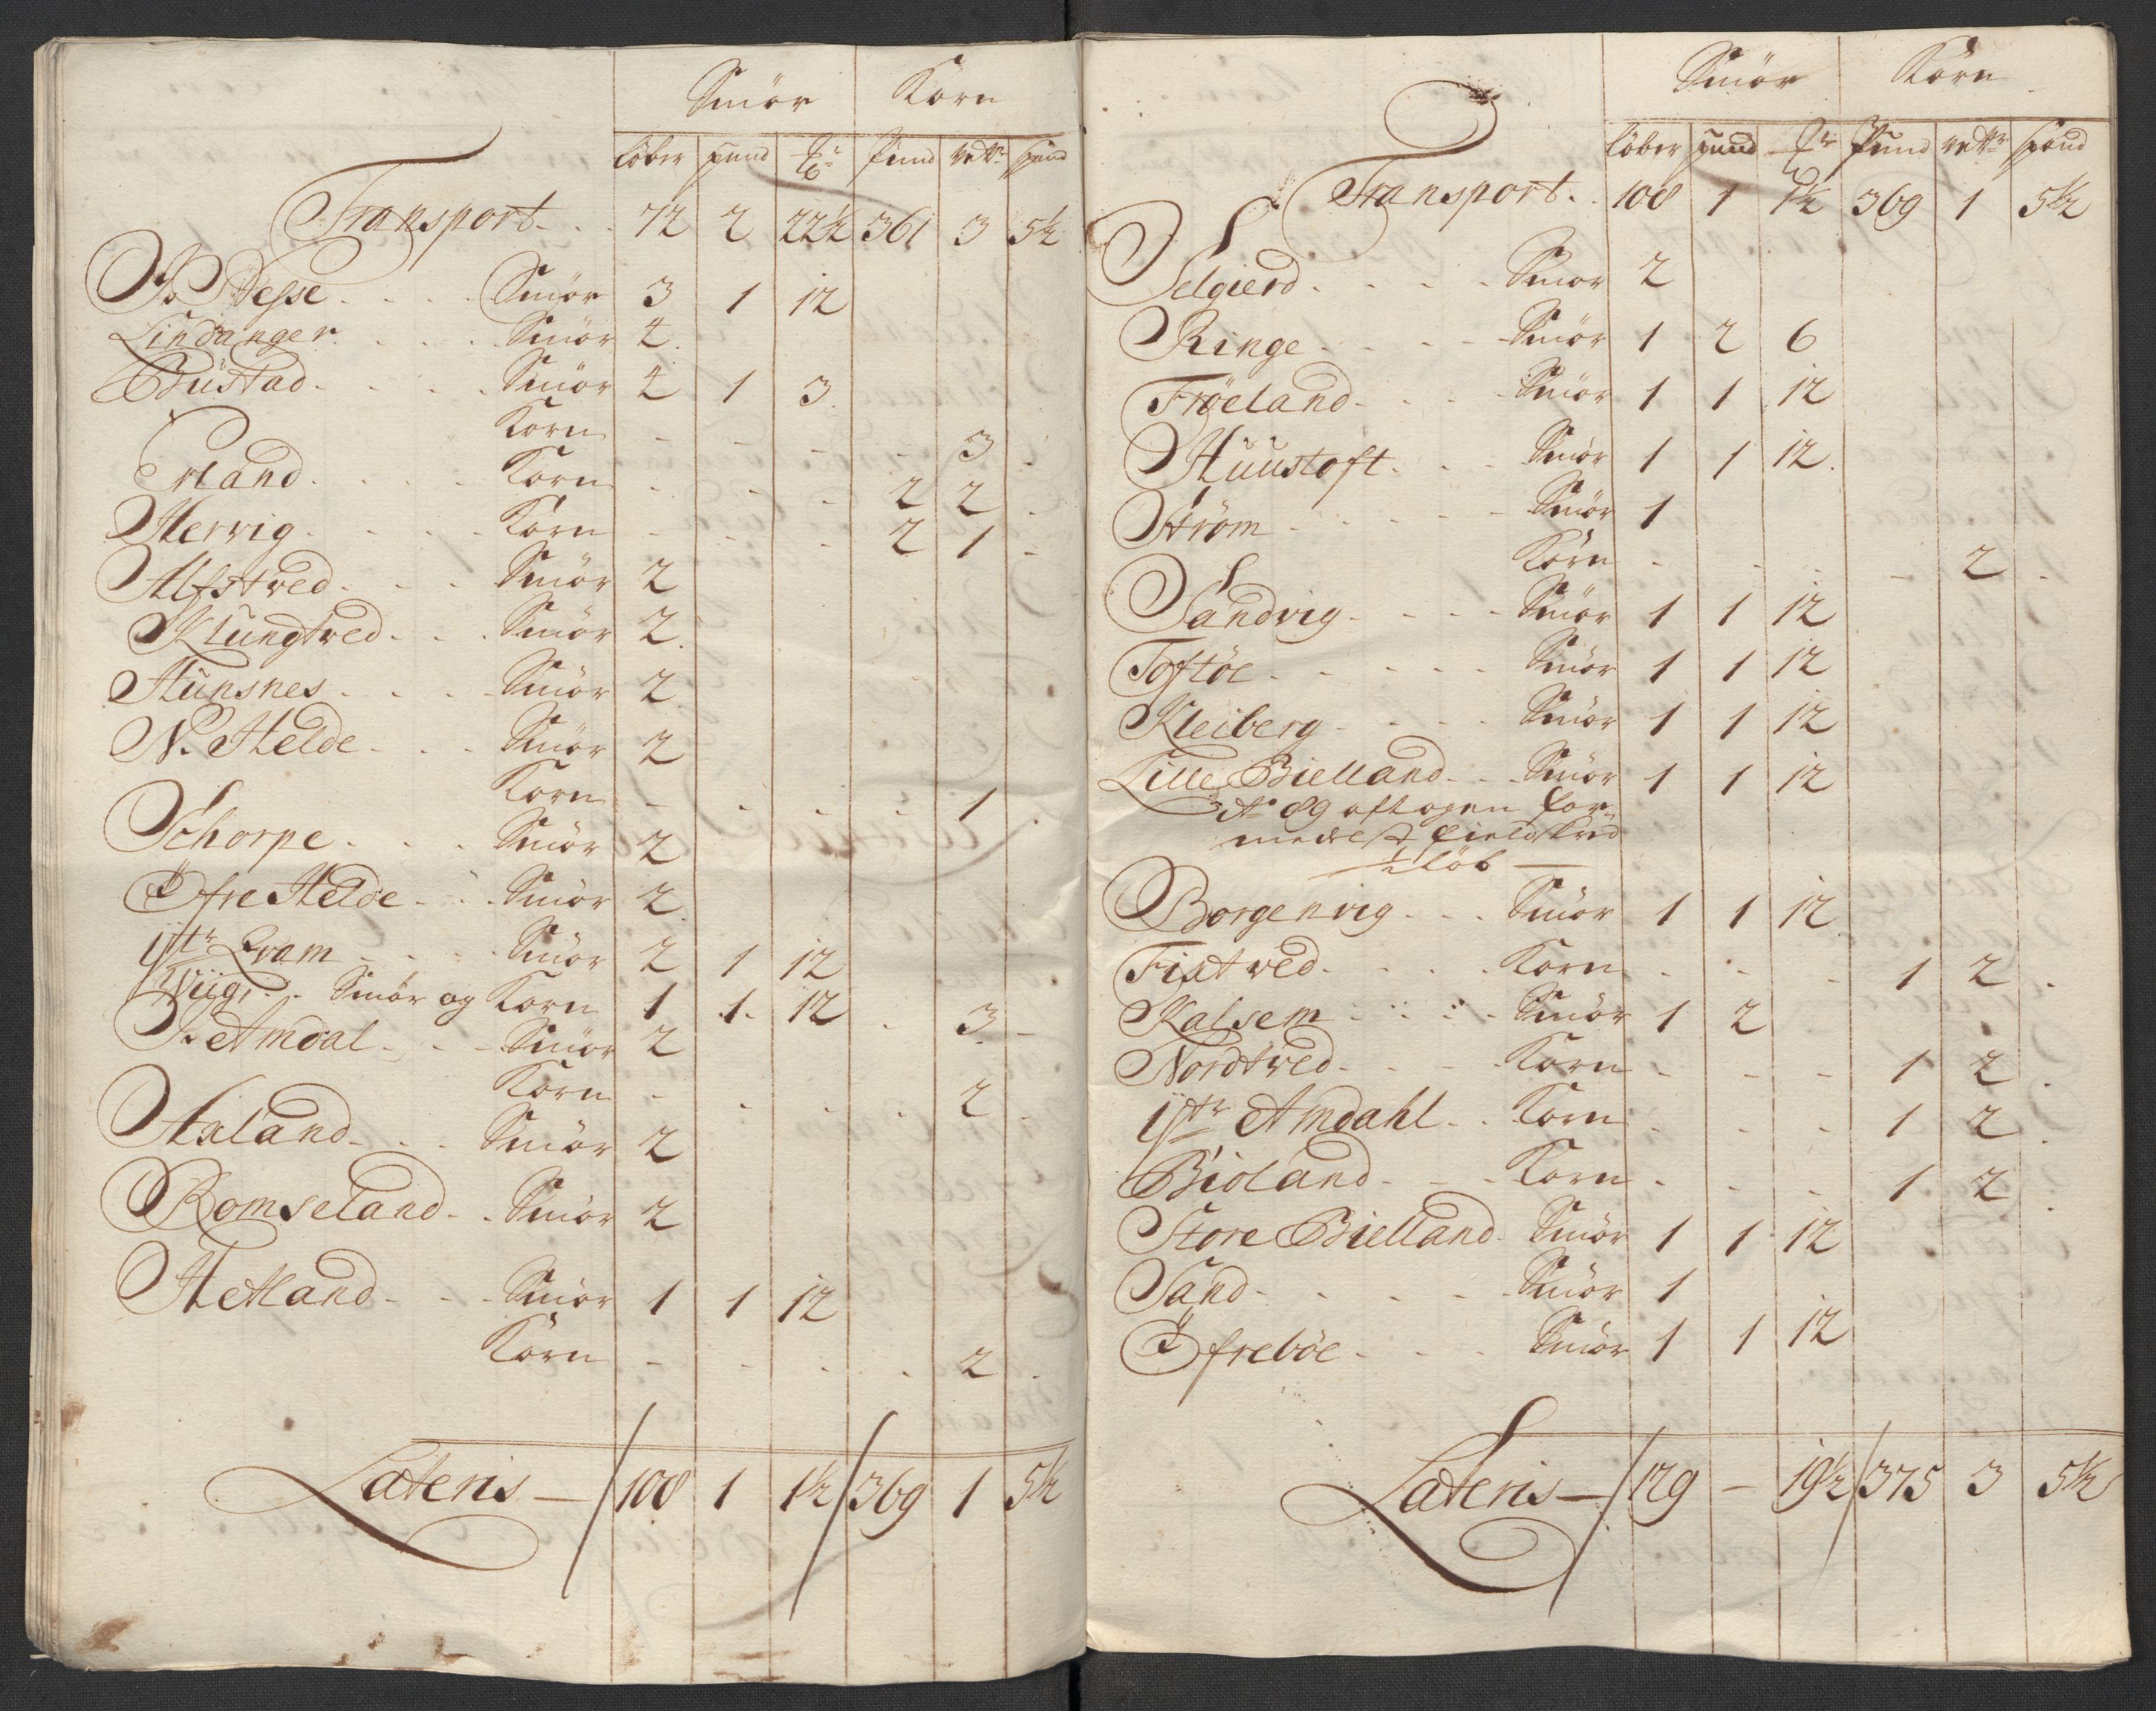 Smör Korn
löber pund ℔r Pund vetr spand
Transport. . . 72 2 22½ 361 3 5½
Desse . . . . Smör 3 1 12
Lindanger . . . . Smör 4
Büstad . . . . Smör 4 1 3
Korn - - - - 3 -
Erland . . . . Korn - - - 2 2 -
Hervig . . . . Korn - - - 2 1 -
Alfstved . . . Smör 2
Klungtved . . . Smör 2
Hünsnes . . . . Smör 2
N. Helde . . . Smör 2
Korn - - - - 1 -
Schorpe . . . Smör 2
Öfre Helde . . . Smör 2
ytr Qvam . . . . Smör 2 1 12
Wiig, . . Smör og Korn 1 1 12 - 3 -
Amdal . . . Smör 2
Korn - - - - 2 -
Axland . . . Smör 2
Romseland . . Smör 2
Hetland . . . Smör 1 1 12
Korn - - - - 2 -
Lateris — 108 1 1½ 369 1 5½
Smör Korn
löber pund ℔r Pund vetr spand
Transport . . 108 1 1½ 369 1 5½
Selgierd . . . . Smör 2
Ringe . . . . Smör 1 2 6
Fröeland . . . . Smör 1 1 12
Huustoft . . . Smör 1 1 12
Ström . . . . . Smör 1
Korn - - - - 2 -
Sandvig . . . . Smör 1 1 12
Toftöe . . . . . Smör 1 1 12
Kleiberg . . . . Smör 1 1 12
Lille Bielland . . . Smör 1 1 12
Ao 89 aftagen for-
medelst fieldskred
½ löb —
Borgenvig . . . Smör 1 1 12
Fistved . . . . Korn - - - 1 2 -
Kalsem . . . . Smör 1 2
Nordtved . . . . Korn - - - 1 2 -
ytr Amdahl . . Korn - - - 1 2 -
Bioland . . . Korn - - - 1 2 -
Store Bielland . Smör 1 1 12
Sand . . . . . Smör 1
Öfreböe . . . Smör 1 1 12
Lateris — 129 — 19½ 375 3 5½